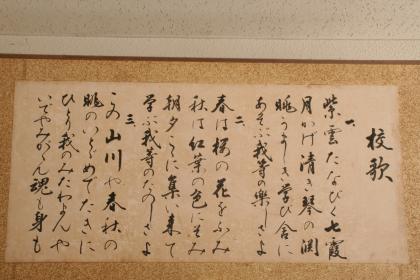 校歌
一、
紫雲たなびく七霞
月かげ清き琴の渕
眺うましき学び舎に
あそぶ我等の楽しさよ
二、
春は桜の花をふみ
秋は紅葉の色にそみ
朝夕ここに集い来て
学ぶ我等のたのしさよ
三、
この山川や春秋の
眺のいとめでたきに
ひとり我のみたわまんや
いでやみがゝん魂も身も